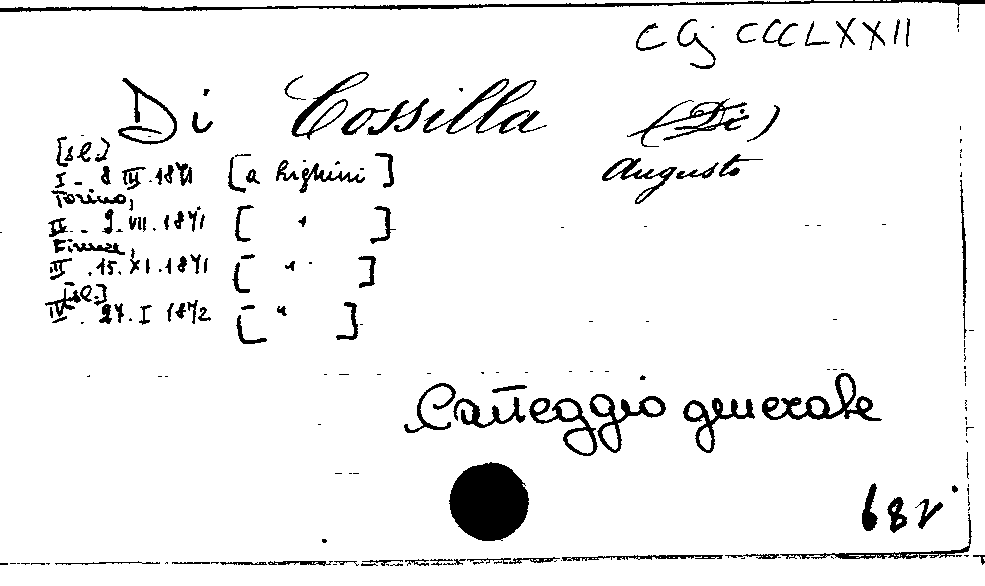 CG CCCLXXII
Di Cossilla (Di)
Augusto
[s.l.]
I - 8 III.1871 [a Righini]
Torino,
II - 9.VII.1871 [ " ]
Firenze,
III .15.XI.1871 [ " ]
[s.l.]
IV - 27.I 1872 [ " ]
Carteggio generale